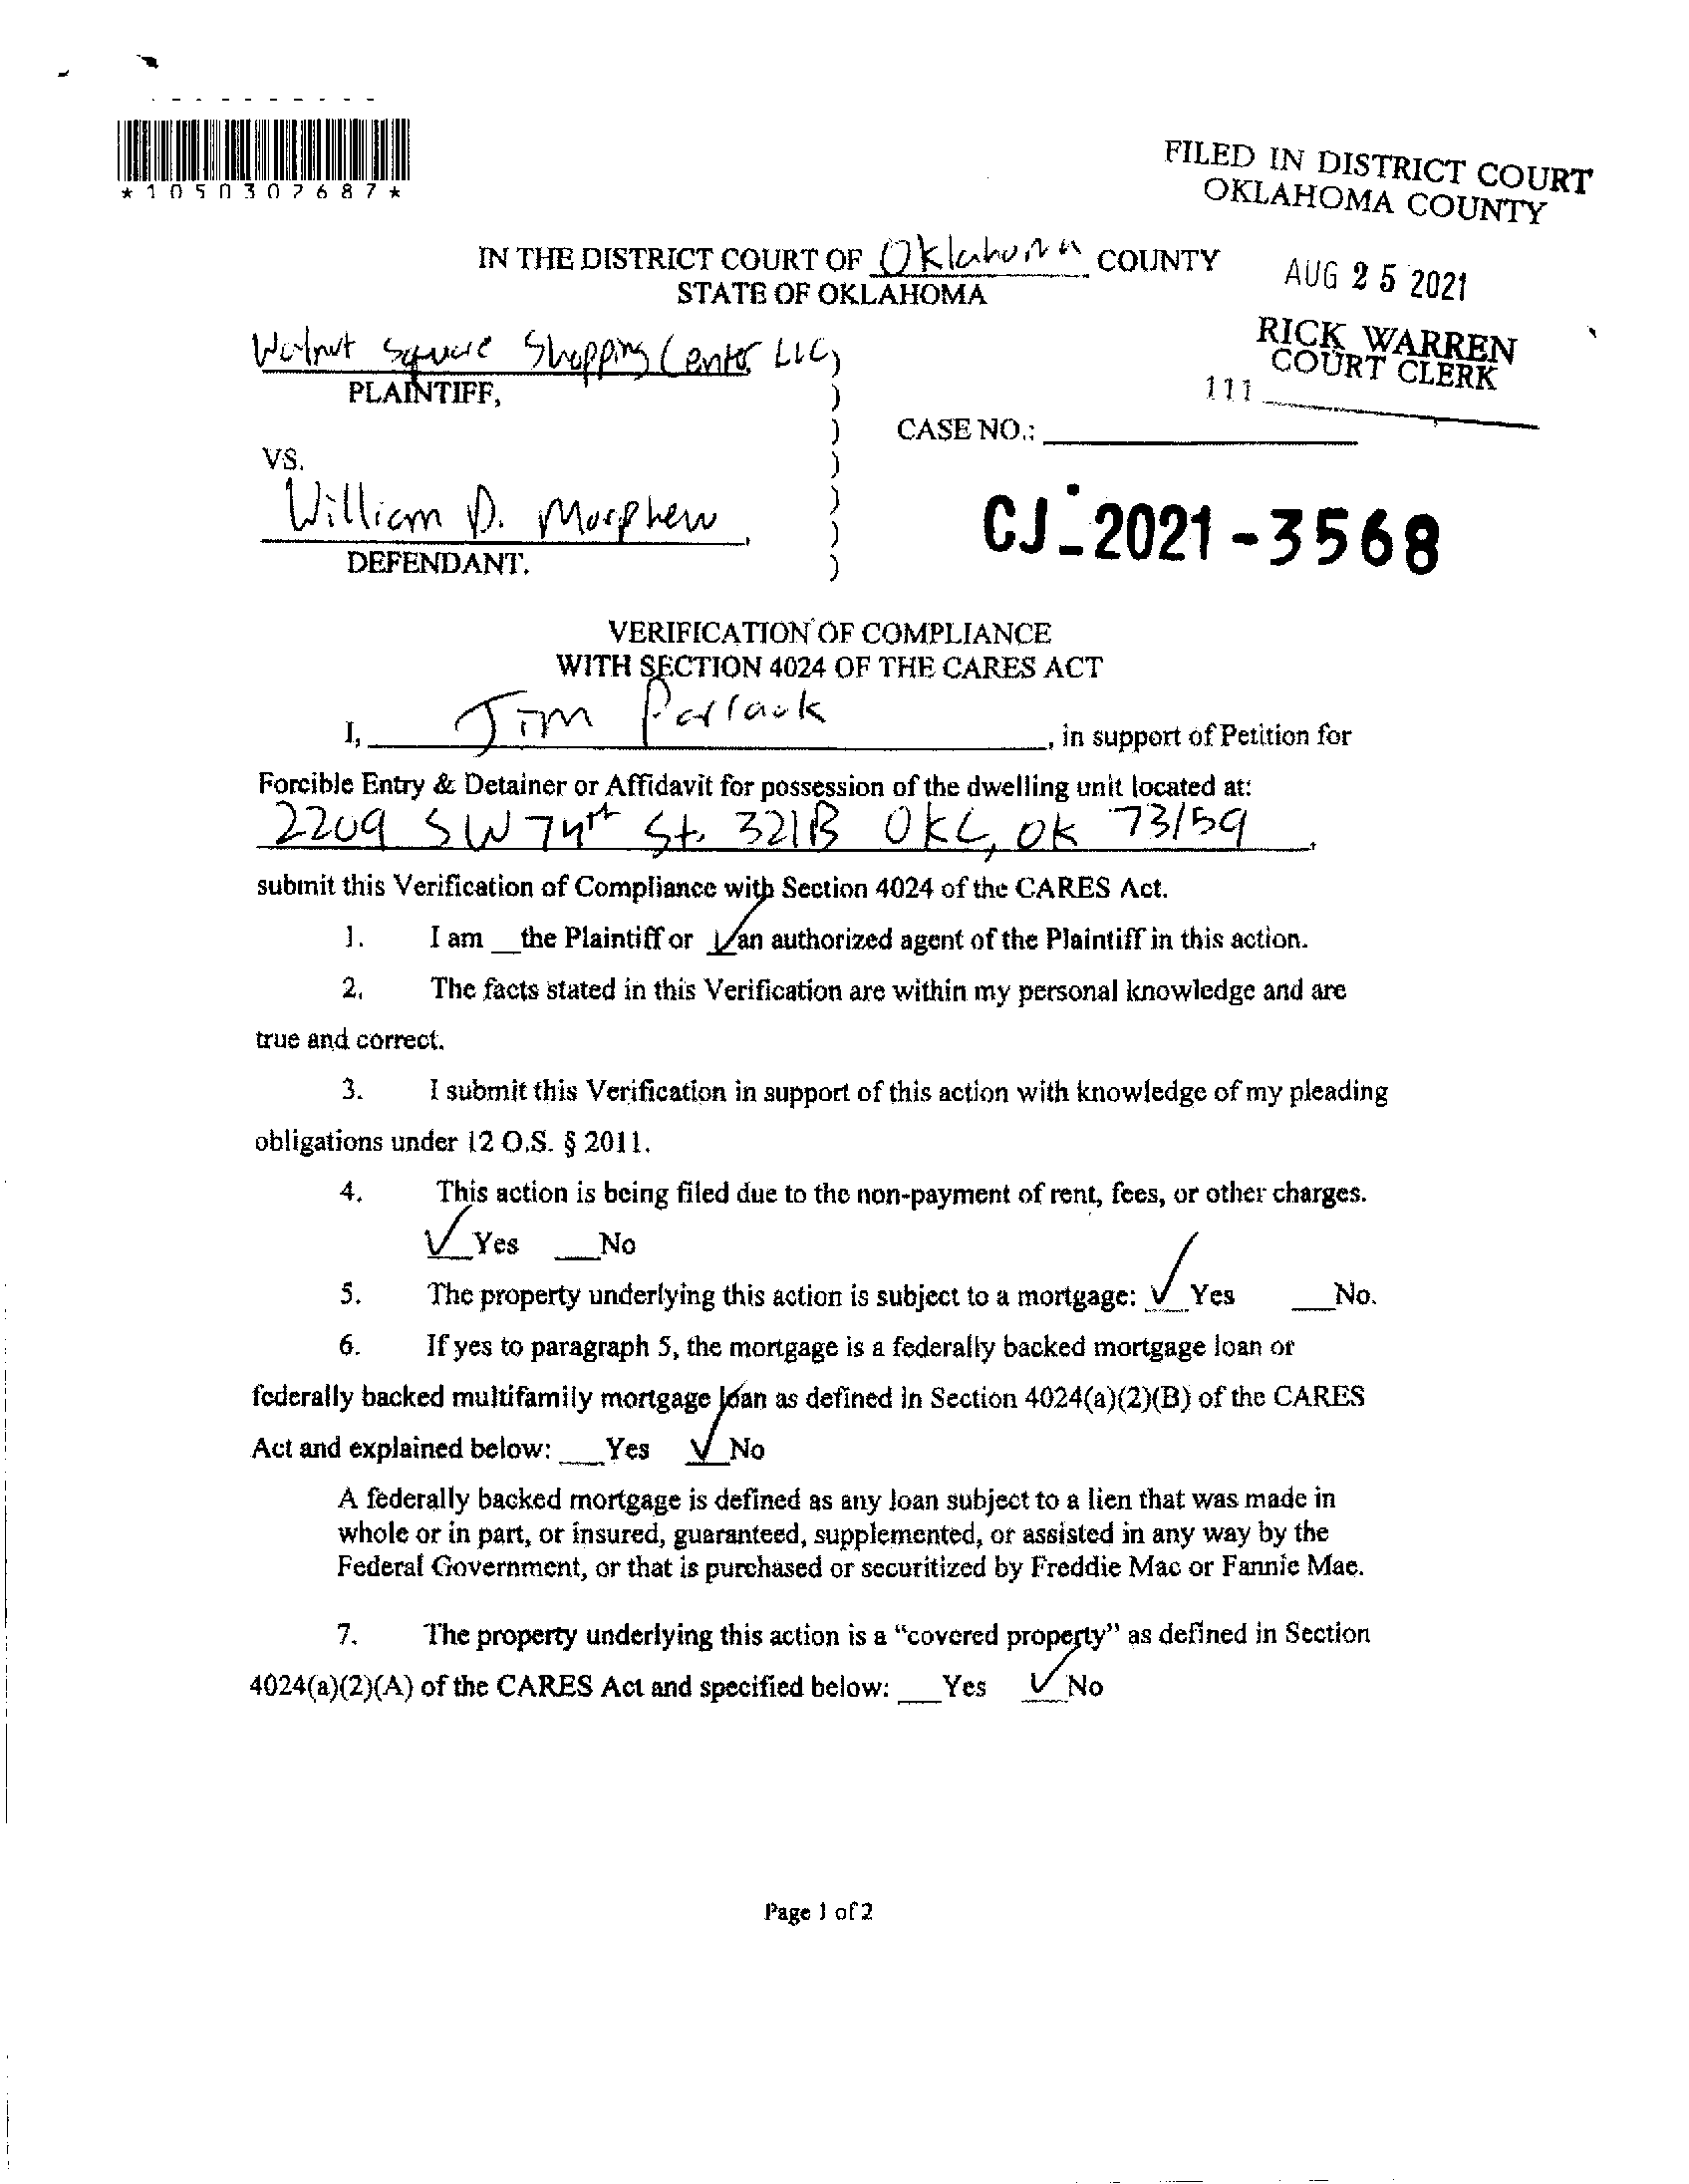 *1050307687*
FILED IN DISTRICT COURT
OKLAHOMA COUNTY
IN THE DISTRICT COURT OF Oklahoma COUNTY
STATE OF OKLAHOMA
AUG 25 2021
RICK WARREN
COURT CLERK
111
Walnut Square Shopping Center LLC,
PLAINTIFF,
CASE NO.:
VS.
CJ-2021-3568
William D. Morphew,
DEFENDANT.
VERIFICATION OF COMPLIANCE
WITH SECTION 4024 OF THE CARES ACT
I, Jim Parrack, in support of Petition for
Forcible Entry & Detainer or Affidavit for possession of the dwelling unit located at:
2209 SW 74th St. 321B OKC, OK 73159,
submit this Verification of Compliance with Section 4024 of the CARES Act.
1. I am __the Plaintiff or ✓ an authorized agent of the Plaintiff in this action.
2. The facts stated in this Verification are within my personal knowledge and are
true and correct.
3. I submit this Verification in support of this action with knowledge of my pleading
obligations under 12 O.S. § 2011.
4. This action is being filed due to the non-payment of rent, fees, or other charges.
✓ Yes ___No
5. The property underlying this action is subject to a mortgage: ✓ Yes ___No.
6. If yes to paragraph 5, the mortgage is a federally backed mortgage loan or
federally backed multifamily mortgage loan as defined in Section 4024(a)(2)(B) of the CARES
Act and explained below: ___Yes ✓ No
A federally backed mortgage is defined as any loan subject to a lien that was made in
whole or in part, or insured, guaranteed, supplemented, or assisted in any way by the
Federal Government, or that is purchased or securitized by Freddie Mac or Fannie Mae.
7. The property underlying this action is a "covered property" as defined in Section
4024(a)(2)(A) of the CARES Act and specified below: ___Yes ✓ No
Page 1 of 2